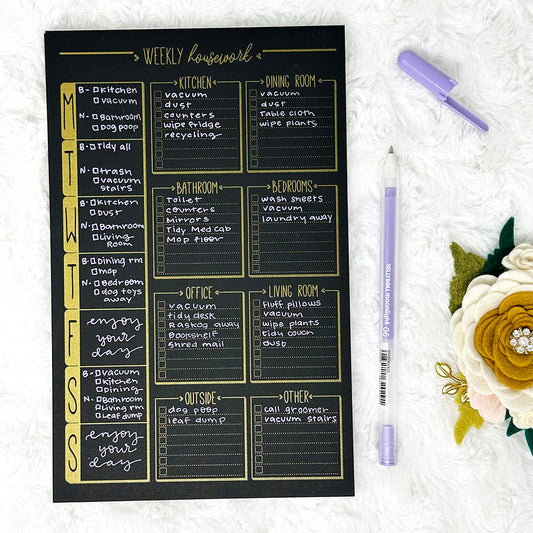 WEEKLY housework
M
B- Kitchen
vacuum
N- Bathroom
Dog poop
T
B- Tidy all
N- trash
vacuum
stairs
W
B- Kitchen
Dust
N- Bathroom
Living
Room
T
B- Dining rm
mop
N- Bedroom
dog toys
away
F
enjoy
your
day
S
B- vacuum
kitchen
Dining
N- Bathroom
Living rm
Leaf dump
S
enjoy
your
day
KITCHEN
vacuum
dust
counters
wipe fridge
recycling
DINING ROOM
vacuum
dust
Table cloth
wipe plants
BATHROOM
Toilet
counters
Mirrors
Tidy Med Cab
Mop floor
BEDROOMS
wash sheets
vacuum
laundry away
OFFICE
vacuum
tidy desk
Raskog away
Bookshelf
shred mail
LIVING ROOM
fluff pillows
vacuum
wipe plants
tidy couch
dust
OUTSIDE
dog poop
leaf dump
OTHER
call groomer
vacuum stairs
GELLY ROLL moonlight 06